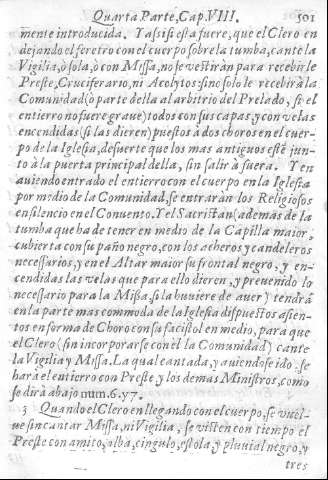 Quarta Parte, Cap. VIII. 501
mente introducida. Y assi si essa fuere, que el Clero en
dejando el feretro con el cuerpo sobre la tumba, cante la
Vigilia, ò sola, ò con Missa, no se vestiràn para recebirle
Preste, Cruciferario, ni Acolytos: sino solo le recebirà la
Comunidad (ò parte della al arbitrio del Prelado, si el
entierro no fuere graue) todos con sus capas, y con velas
encendidas (si las dieren) puestos à dos choros en el cuer-
po de la Iglesia, desuerte que los mas antiguos estè jun-
to à la puerta principal della, sin salir à fuera. Y en
auiendo entrado el entierro con el cuerpo en la Iglesia
por medio de la Comunidad, se entraràn los Religiosos
en silencio en el Conuento. Y el Sacristan (ademàs de la
tumba que ha de tener en medio de la Capilla maior,
cubierta con su paño negro, con los acheros y candeleros
necessarios, y en el Altar maior su frontal negro, y en-
cendidas las velas que para ello dieren, y preuenido lo
necessario para la Missa, si la huuiere de auer) tendrà
en la parte mas commoda de la Iglesia dispuestos asien-
tos en forma de Choro con su facistol en medio, para que
el Clero (sin incorporarse con èl la Comunidad) cante
la Vigilia y Missa. La qual cantada, y auiendose ido, se
harà el entierro con Preste y los demàs Ministros, como
se dirà abajo num. 6. y 7.
3 Quando el Clero en llegando con el cuerpo, se vuel-
ue sin cantar Missa, ni Vigilia, se visten con tiempo el
Preste con amito, alba, cingulo, estola, y pluuial negro, y
tres